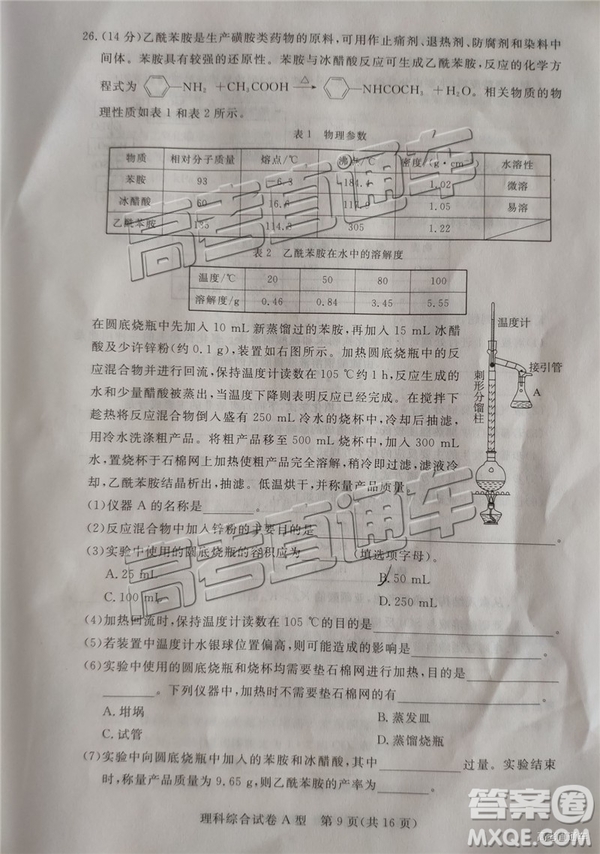 26.(14分)乙酰苯胺是生产磺胺类药物的原料,可用作止痛剂、退热剂、防腐剂和染料中
间体。苯胺具有较强的还原性。苯胺与冰醋酸反应可生成乙酰苯胺,反应的化学方
程式为 —NH₂ +CH₃COOH △→ —NHCOCH₃ +H₂O。相关物质的物
理性质如表1和表2所示。
表1 物理参数
物质 相对分子质量 熔点/℃ 沸点/℃ 密度/(g·cm 水溶性
苯胺 93 184. 1.02 微溶
冰醋酸 60 1.05 易溶
乙酰苯胺 135 114.3 305 1.22
表2 乙酰苯胺在水中的溶解度
温度/℃ 20 50 80 100
溶解度/g 0.46 0.84 3.45 5.55
在圆底烧瓶中先加入10 mL新蒸馏过的苯胺,再加入15 mL冰醋
酸及少许锌粉(约0.1 g),装置如右图所示。加热圆底烧瓶中的反
应混合物并进行回流,保持温度计读数在105 ℃约1 h,反应生成的
水和少量醋酸被蒸出,当温度下降则表明反应已经完成。在搅拌下
趁热将反应混合物倒入盛有250 mL冷水的烧杯中,冷却后抽滤,
用冷水洗涤粗产品。将粗产品移至500 mL烧杯中,加入300 mL
水,置烧杯于石棉网上加热使粗产品完全溶解,稍冷即过滤,滤液冷
却,乙酰苯胺结晶析出,抽滤。低温烘干,并称量产品质量。
温度计
接引管
A
刺形分馏柱
(1)仪器A的名称是________。
(2)反应混合物中加入锌粉的主要目的是________。
(3)实验中使用的圆底烧瓶的容积应为________(填选项字母)。
A.25 mL B.50 mL
C.100 mL D.250 mL
(4)加热回流时,保持温度计读数在105 ℃的目的是________。
(5)若装置中温度计水银球位置偏高,则可能造成的影响是________。
(6)实验中使用的圆底烧瓶和烧杯均需要垫石棉网进行加热,目的是________
________。下列仪器中,加热时不需要垫石棉网的有________。
A.坩埚 B.蒸发皿
C.试管 D.蒸馏烧瓶
(7)实验中向圆底烧瓶中加入的苯胺和冰醋酸,其中________过量。实验结束
时,称量产品质量为9.65 g,则乙酰苯胺的产率为________。
理科综合试卷A型 第9页(共16页)
高考直通车
高考直通车
答案卷